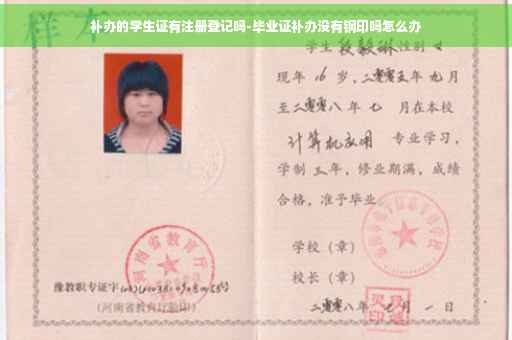 补办的学生证有注册登记吗-毕业证补办没有钢印吗怎么办
样本
学生 段毅琳 性别 女
现年 16 岁，二零零五年 九月
至二零零八年 七 月在本校
计算机应用 专业学习，
学制 三年，修业期满，成绩
合格，准予毕业
学校（章）
校长（章）
二零零八年 月 一 日
河南省教育厅
豫教职专证字
（河南省教育厅验印）